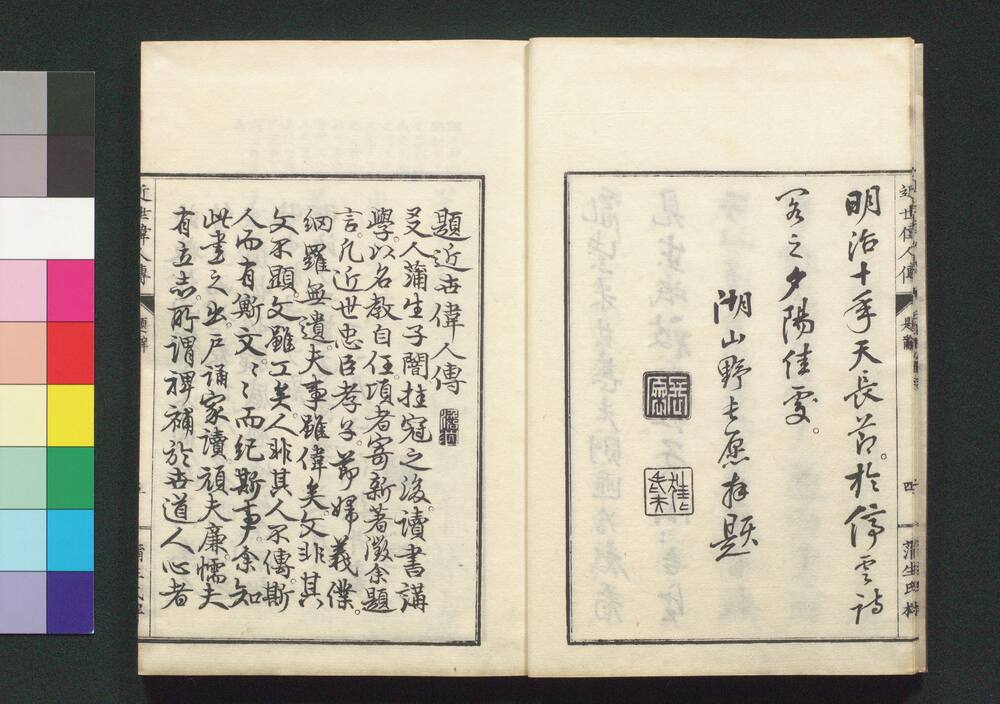 明治十年天長節。於停雲詩
閣之夕陽佳處。
湖山野長愿拜題
近世偉人傳
題辭
四
蒲生氏梓
題近世偉人傳
友人蒲生子闇挂冠之後。讀書講
學。以名教自任。項者寄新著徵余題
言。凡近世忠臣孝子。節婦義僕。
網羅無遺。夫事雖偉矣。文非其
文不顯。文雖工矣。人非其人不傳。斯
人而有斯文。〻〻而紀斯事。余知
此書之出。戸誦家讀。頑夫廉。懦夫
有立志。所謂裨補於世道人心者
近世偉人傳
題辭